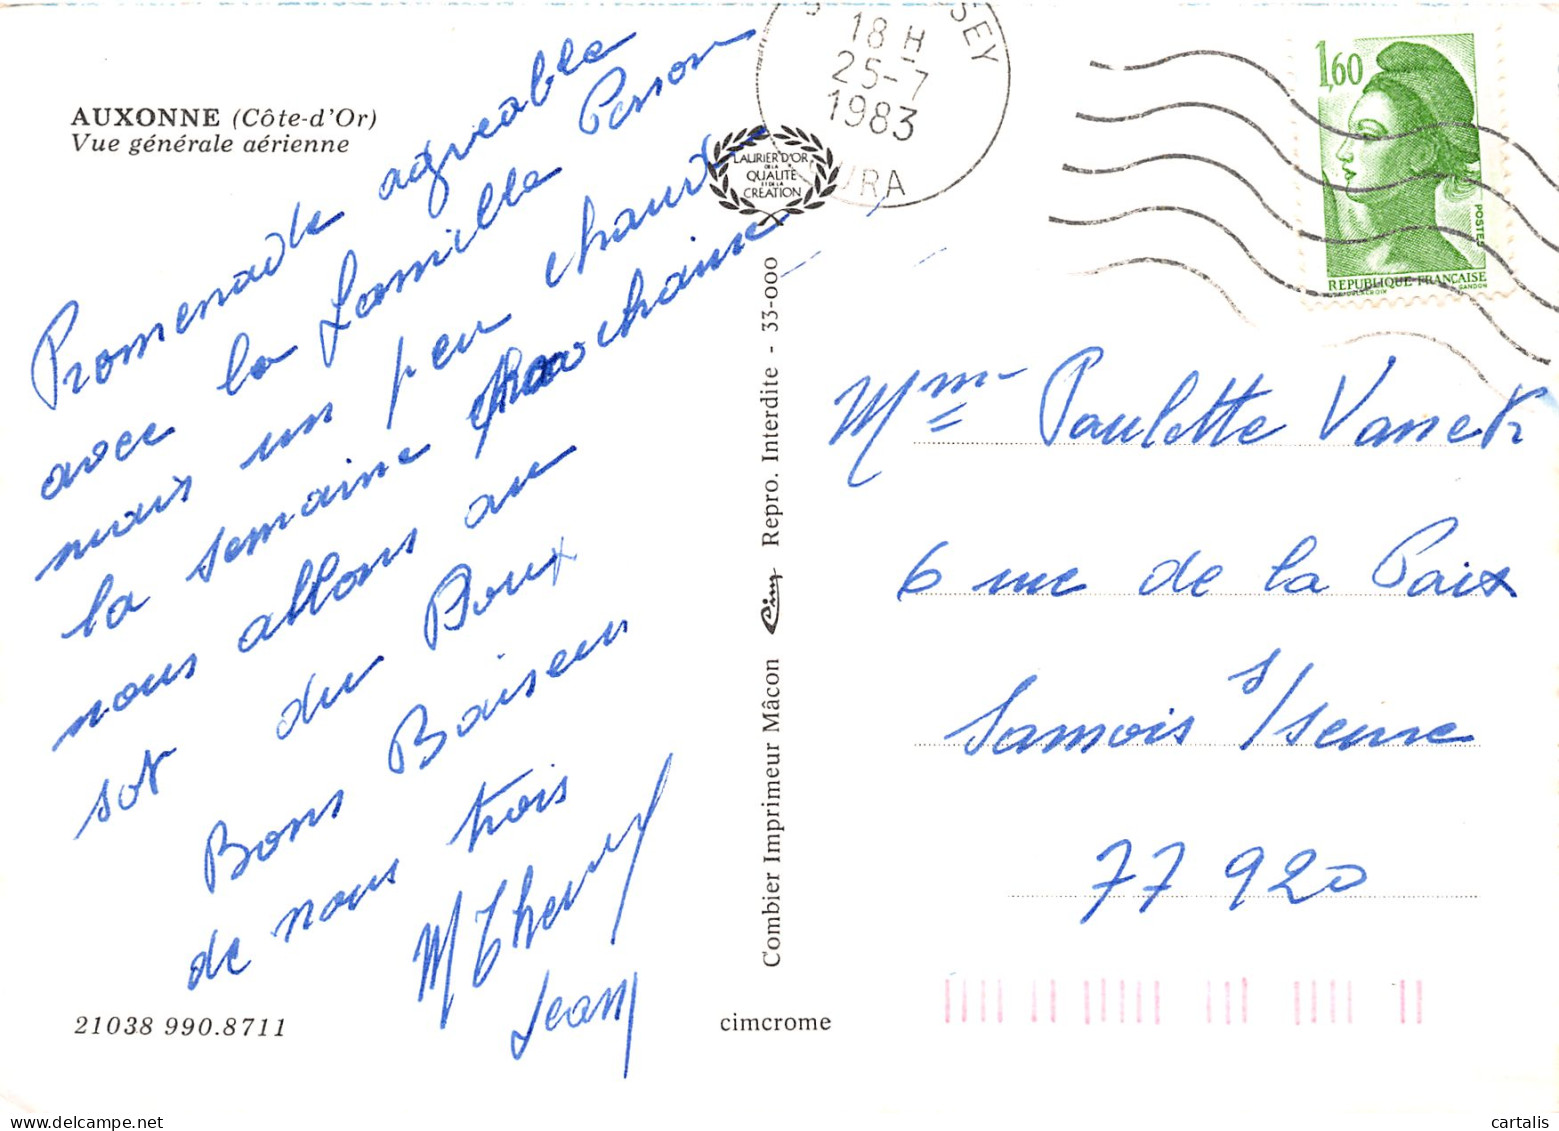 AUXONNE (Côte-d'Or)
Vue générale aérienne
Promenade agréable
avec la famille Person
mais un peu chaud
la semaine prochaine
nous allons au
sot du Doux
Bons Baiseur
de nous trois
M Therry
Jean
21038 990.8711
cimcrome
Combier Imprimeur Mâcon Cim Repro. Interdite - 33-000
LAURIER D'OR
DE LA
QUALITÉ
ET DE LA
CREATION
SEY
18 H
25-7
1983
JURA
1,60
POSTES
RÉPUBLIQUE FRANÇAISE
GANDON
Mme Paulette Vaneck
6 rue de la Paix
Samois s/seine
77920
cartalis